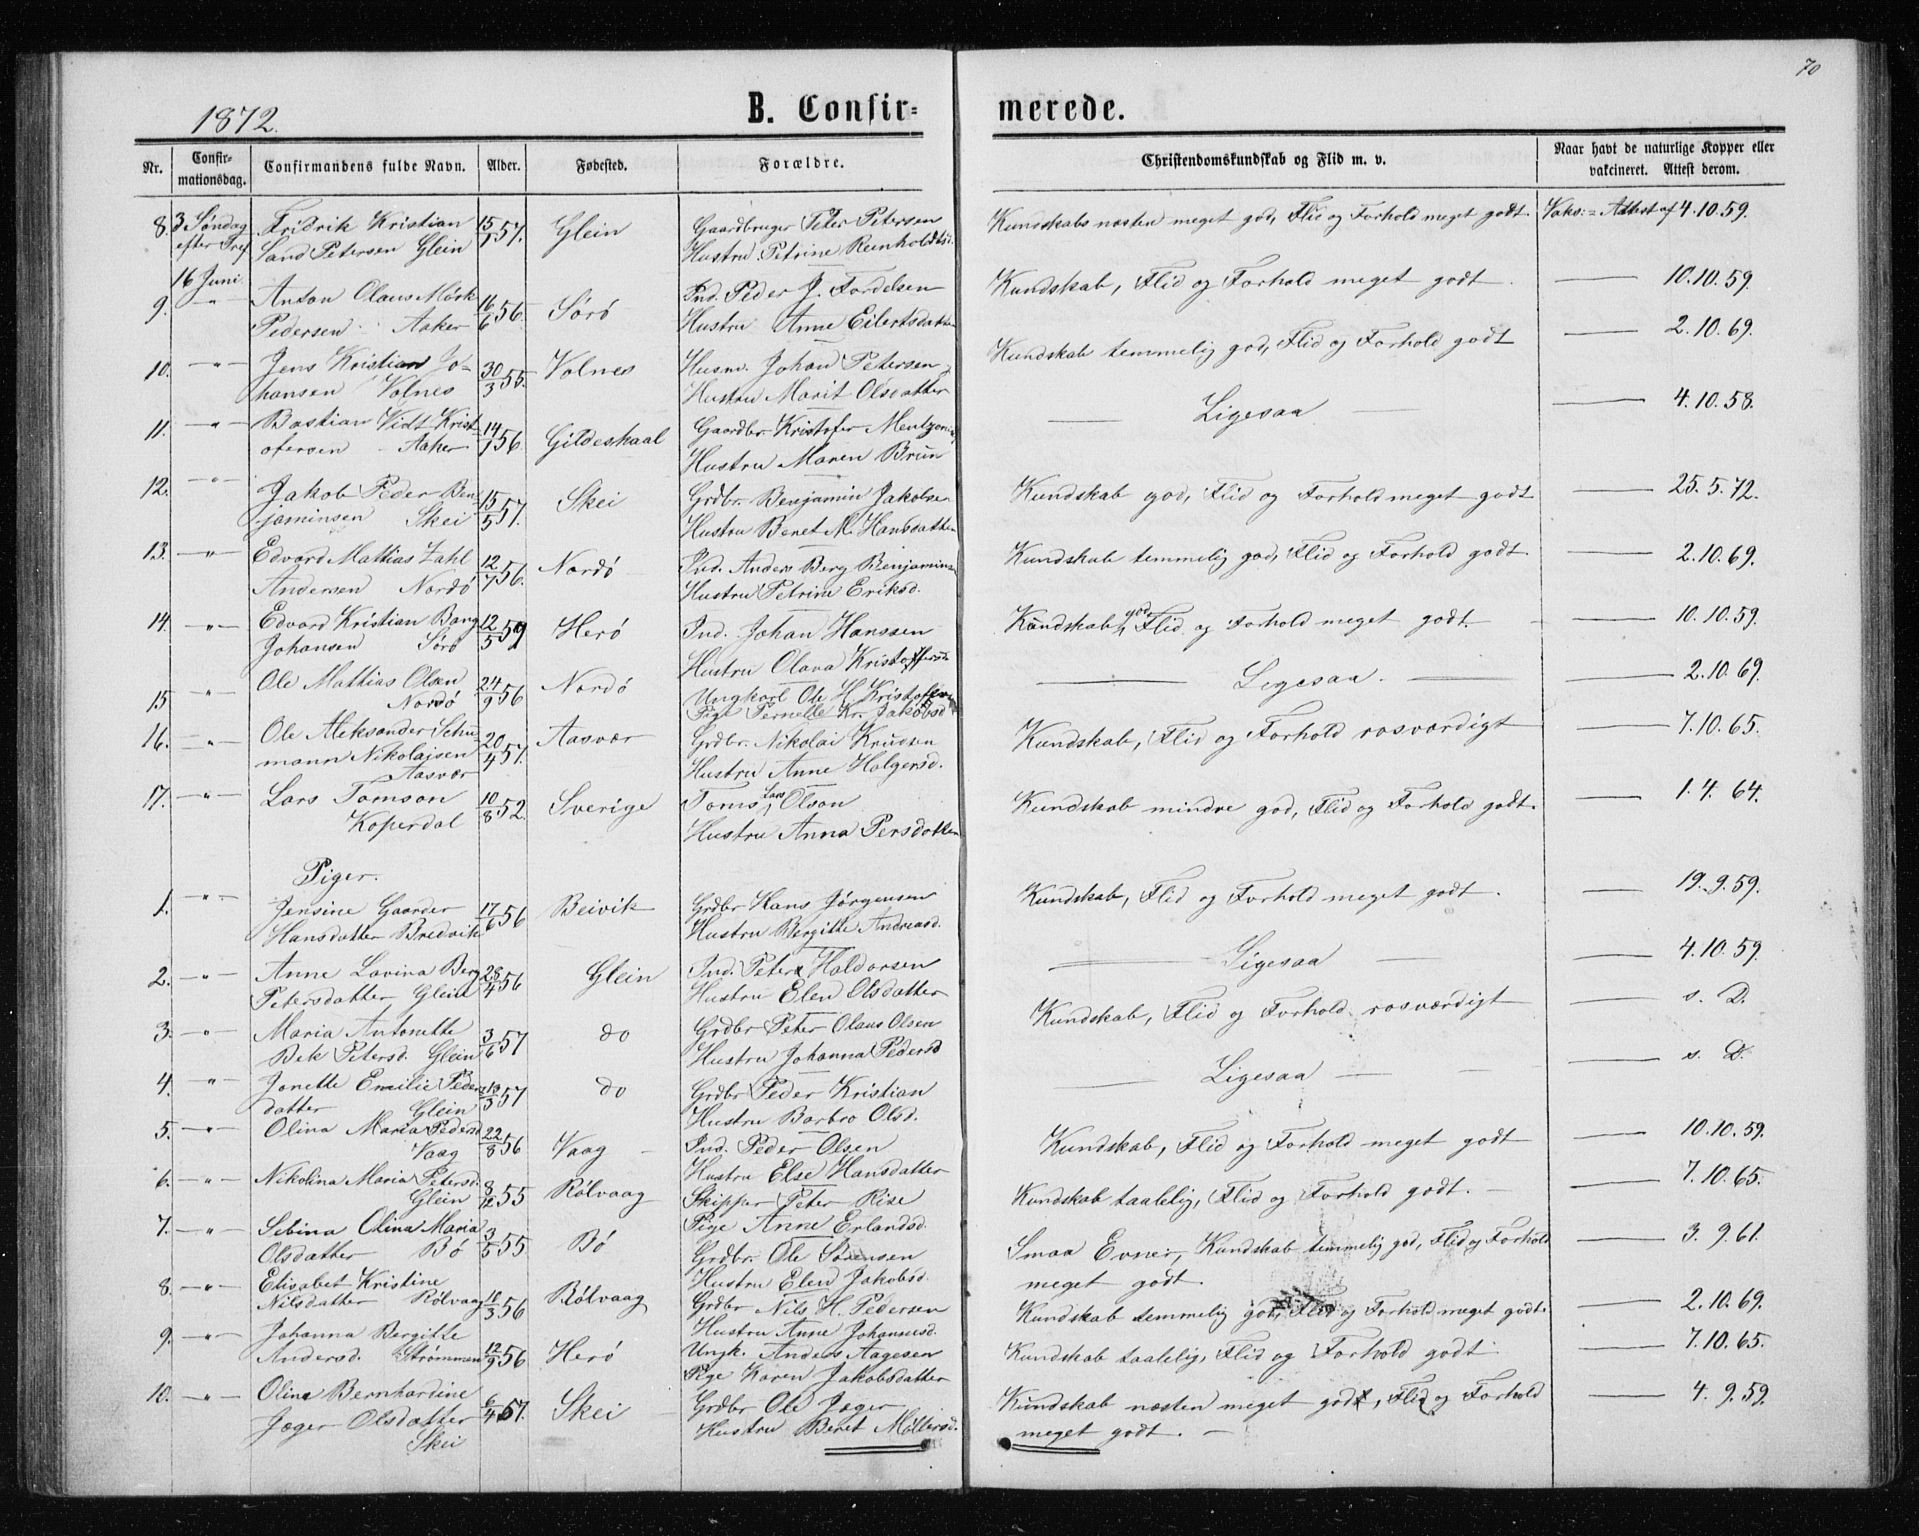 70
1872.
B. Confir=
merede.
Nr.
Confir-
mationsdag.
Confirmandens fulde Navn.
Alder.
Fødested.
Forældre.
Christendomskundskab og Flid m. v.
Naar havt de naturlige Kopper eller
vakcineret. Attest derom.
8. 3 Søndag Fridrik Kristian 15/1 57. Glein Gaardbruger Peter Petersen Kundskabs næsten meget god, Flid og Forhold meget godt. Vaks: = Attest af 4.10.59.
efter Tref Sand Petersen Glein Hustru Petrine Reinholdtsd.
16 Juni
9. " Anton Olaus Mörk 16/6 56. Sörö Ind. Peder J. Fordelsen Kundskab, Flid og Forhold meget godt. — 10.10.59.
Pedersen Aaker Hustru Anne Eilertsdatter
10. " Jens Kristian Jo- 30/3 55. Volnes Husm. Johan Petersen Kundskab temmelig god, Flid og Forhold godt — 2.10.69.
hansen Volnes Hustru Marit Olsdatter
11. " Bastian Vidt Krist 14/1 56. Gildeskaal Gaardbr. Kristofer Mentzoni — Ligesaa — — 4.10.58.
ofersen - Aaker Hustru Maren Brun
12. " Jakob Peder Ben- 15/5 57. Skei Grdbr. Benjamin Jakobsen Kundskab god, Flid og Forhold meget godt — 25.5.72.
jaminsen Skei Hustru Beret M. Hansdatter
13. " Edvard Mathias Zahl 12/7 56. Nordö Ind. Anders Berg Benjaminsen Kundskab temmelig god, Flid og Forhold godt. — 2.10.69.
Andersen Nordö Hustru Petrine Eriksd.
14. " Edvard Kristian Bang 12/5 59 Herö Ind. Johan Hanssen Kundskab god, Flid og Forhold meget godt. — 10.10.59.
Johansen Sörö Hustru Olava Kristoffersd
15 " Ole Mathias Olsen 24/9 56 Nordö Ungkarl Ole H. Kristofersen — Ligesaa. — — 2.10.69.
Nordö Pige Pernelle Kr. Jakobsd
16. " Ole Aleksander Schu 20/4 57. Aasvær Grdbr. Nikolai Knudsen Kundskab, Flid og Forhold rosværdigt — 7.10.65.
mann Nikolaisen Hustru Anne Holgersd.
Aasvær
17. " Lars Tomson 10/8 52. Sverige Toms Lars Olson Kundskab mindre god, Flid og Forhold godt. — 1.4.64.
Koperdal Hustru Anna Persdatter
Piger.
1. " Jensine Gaarder 17/6 56 Beivik Grdbr Hans Jørgensen Kundskab, Flid og Forhold meget godt. — 19.9.59.
Hansdatter Bredvik Hustru Bergitte Andreasd.
2. " Anne Lovina Berg 28/4 56 Glein Ind. Peter Haldorsen — Ligesaa — — 4.10.59.
Petersdatter Glein Hustru Elen Olsdatter
3. " Maria Antonette 3/6 57 do Grdbr Peter Olaus Olsen Kundskab, Flid og Forhold rosværdigt — s. D.
Bek Petersd. Glein Hustru Johanna Pedersd
4. " Jonette Emilie Peders 13/3 57 do Grdbr Peder Kristian — Ligesaa — — s. D.
datter Glein Hustru Barbro Olsd.
5. " Olina Maria Pedersd 22/8 56 Vaag Ind. Peder Olsen Kundskab, Flid og Forhold meget godt — 10.10.59.
Vaag Hustru Else Hansdatter
6. " Nikolina Maria Petersd. 8/12 55 Rölvaag Skipper Peter Rise Kundskab taalelig, Flid og Forhold godt. — 7.10.65.
Glein Pige Anne Erlandsd.
7. " Sibina Olina Maria 3/5 55 Bö Grdbr. Ole Sörensen Smaa Evner, Kundskab temmelig god, Flid og Forhold — 3.9.61.
Olsdatter Bö Hustru Elen Jakobsd. meget godt.
8. " Elisabet Kristine 10/3 56 Rölvaag Grdbr Nils H. Pedersen Kundskab temmelig god, Flid og Forhold meget godt. — 2.10.69.
Nilsdatter Rölvaag Hustru Anne Johannesd.
9. " Johanna Bergitte 12/9 56 Herö Ungk. Anders Aagesen Kundskab taalelig, Flid og Forhold godt. — 7.10.65.
Andersd. Strömmen Pige Karen Jakobsdatter
10. " Olina Bernhardine 6/4 57. Skei Grdbr Ole Jæger Kundskab næsten meget godt, Flid og Forhold — 4.9.59.
Jæger Olsdatter Hustru Beret Möllersd. meget godt. —
Skei